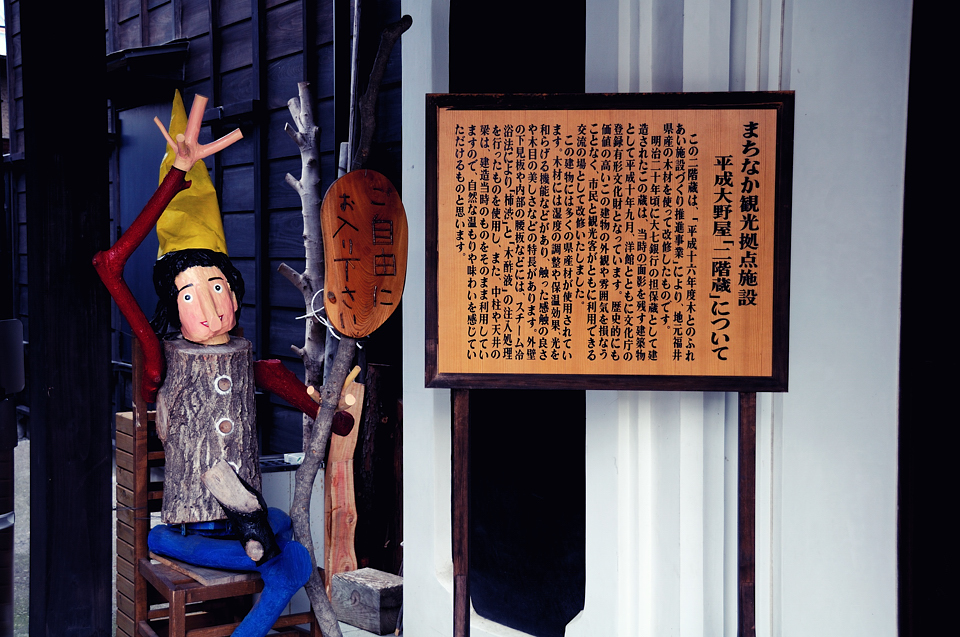 まちなか観光拠点施設
平成大野屋「二階蔵」について
この二階蔵は、「平成十六年度木とのふれ
あい施設づくり推進事業」により、地元福井
県産の木材を使って改修したものです。
明治二十年頃に大七銀行の担保蔵として建
造されたこの蔵は、当時の面影を残す建築物
として平成十年九月、洋館とともに文化庁の
登録有形文化財となっています。歴史的にも
価値の高いこの建物の外観や雰囲気を損なう
ことなく、市民と観光客がともに利用できる
交流の場として改修いたしました。
この建物には多くの県産材が使用されてい
ます。木材には湿度の調整や保温効果、光を
和らげる機能などがあり、触った感触の良さ
や木目の美しさなどの特長があります。外壁
の下見板や内部の腰板などには、スチーム冷
浴法により「柿渋」と「木酢液」の注入処理
を行ったものを使用し、また、中柱や天井の
梁は、建造当時のものをそのまま利用してい
ますので、自然な温もりや味わいを感じてい
ただけるものと思います。
ご自由に
お入り下さい